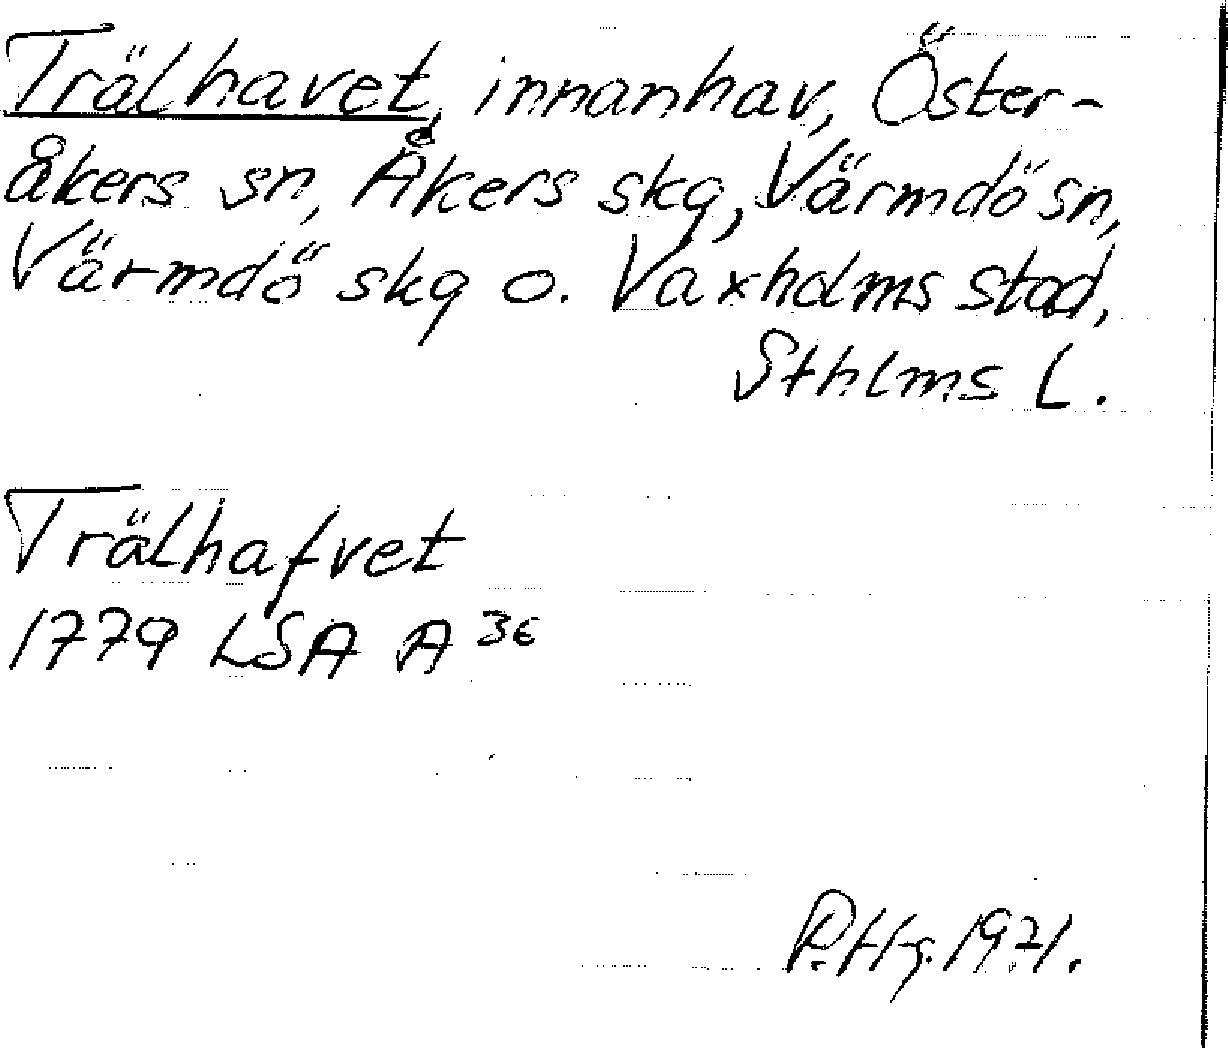 Trälhavet, innanhav, Öster-
åkers sn, Åkers skg, Värmdö sn,
Värmdö skg o. Vaxholms stad,
Sthlms L.
Trälhafvet
1779 LSA A 36
P.Hg. 1971.